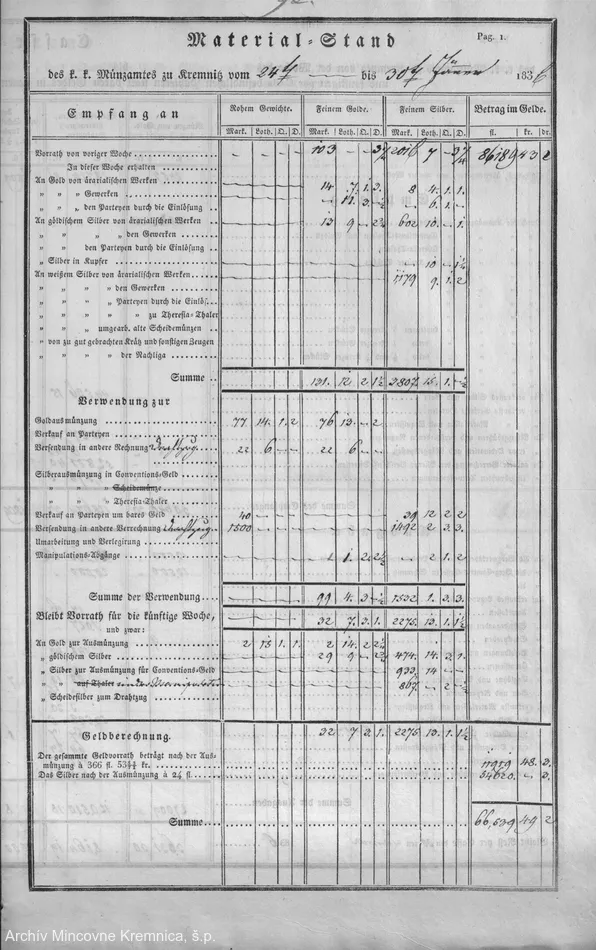 Material-Stand
Pag. 1.
des k. k. Münzamtes zu Kremnitz vom 24 bis 30 Jäner 1836
Empfang an
Rohem Gewichte. Feinem Golde. Feinem Silber. Betrag im Gelde.
Mark. Loth. Q. D. Mark. Loth. Q. D. Mark. Loth. Q. D. fl. kr. dr.
Vorrath von voriger Woche - - - - 103 - - 2016 7 - 86189 43 2
In dieser Woche erhalten
An Gold von ärarialischen Werken 14 7 1 3 8 4 1 1
„ „ „ Gewerken - 11 3 - 6 1 -
„ „ „ den Parteyen durch die Einlösung
An göldischem Silber von ärarialischen Werken 13 9 - 602 10 - 1
„ „ „ „ den Gewerken
„ „ „ den Parteyen durch die Einlösung
„ Silber in Kupfer - 10 -
An weißem Silber von ärarialischen Werken 1179 9 1 2
„ „ „ „ den Gewerken
„ „ „ „ Parteyen durch die Einlös.
„ „ „ „ zu Theresia-Thaler
„ „ „ umgearb. alte Scheidemünzen
„ von zu gut gebrachten Krätz und sonstigen Zeugen
„ „ „ der Nachliga
Summe 131 12 2 1½ 3807 15 1 -
Verwendung zur
Goldausmünzung 77 14 1 2 76 13 - 2
Verkauf an Parteyen
Versendung in andere Rechnung Drahtzug 22 6 - - 22 6 - -
Silberausmünzung in Conventions-Geld
„ „ Scheidemünze
„ „ Theresia-Thaler
Verkauf an Parteyen um bares Geld 40 39 12 2 2
Versendung in andere Verrechnung Drahtzug 1500 1492 2 3 3
Umarbeitung und Verlegirung
Manipulations-Abgänge - 1 2 2½ - 2 1 2
Summe der Verwendung 99 4 3 - 1532 1 3 3
Bleibt Vorrath für die künftige Woche, 32 7 3 1 2275 13 1 1½
und zwar:
An Gold zur Ausmünzung 2 15 1 1 2 14 2
„ göldischem Silber 29 9 - 474 14 2 1
„ Silber zur Ausmünzung für Conventions-Geld 933 14 -
„ „ auf Thaler 867 - 2
„ Scheidesilber zum Drahtzug
Geldberechnung. 32 7 3 1 2275 13 1 1½
Der gesammte Goldvorrath beträgt nach der Aus-
münzung à 366 fl. 53 kr. 11919 48 3
Das Silber nach der Ausmünzung à 24 fl. 54620 - 3
Summe 66,539 49 2
Archív Mincovne Kremnica, š.p.